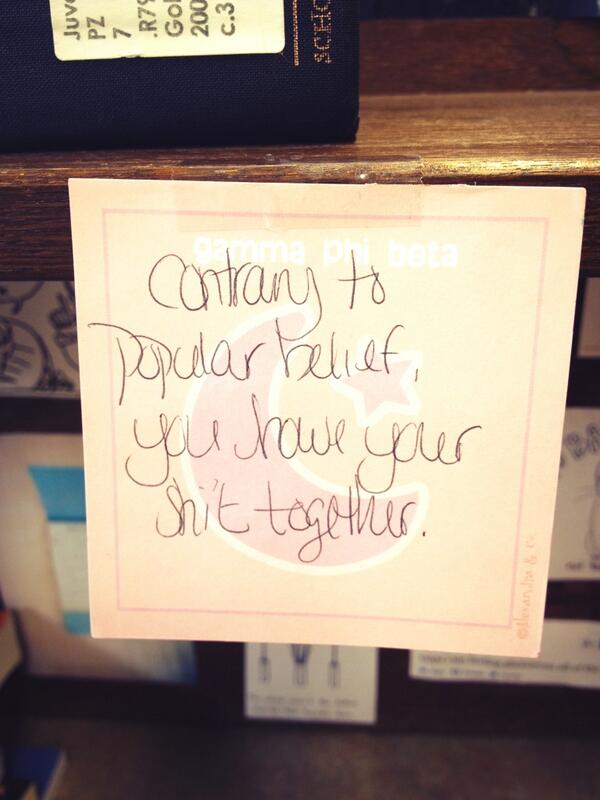 Juv
PZ
7
.R79
Gol
200
c.3
SCHO
gamma phi beta
Contrary to
popular belief,
you have your
shit together.
©Alexandra & Co